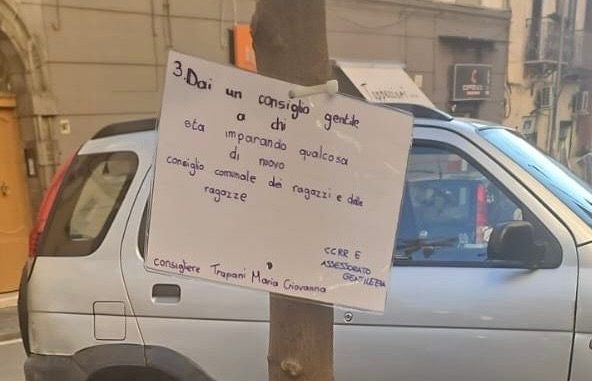 3. Dai un consiglio gentile
a chi
sta imparando qualcosa
di nuovo
consiglio comunale dei ragazzi e delle
ragazze
CCRR E
ASSESSORATO
GENTILEZZA
consigliere Trapani Maria Giovanna